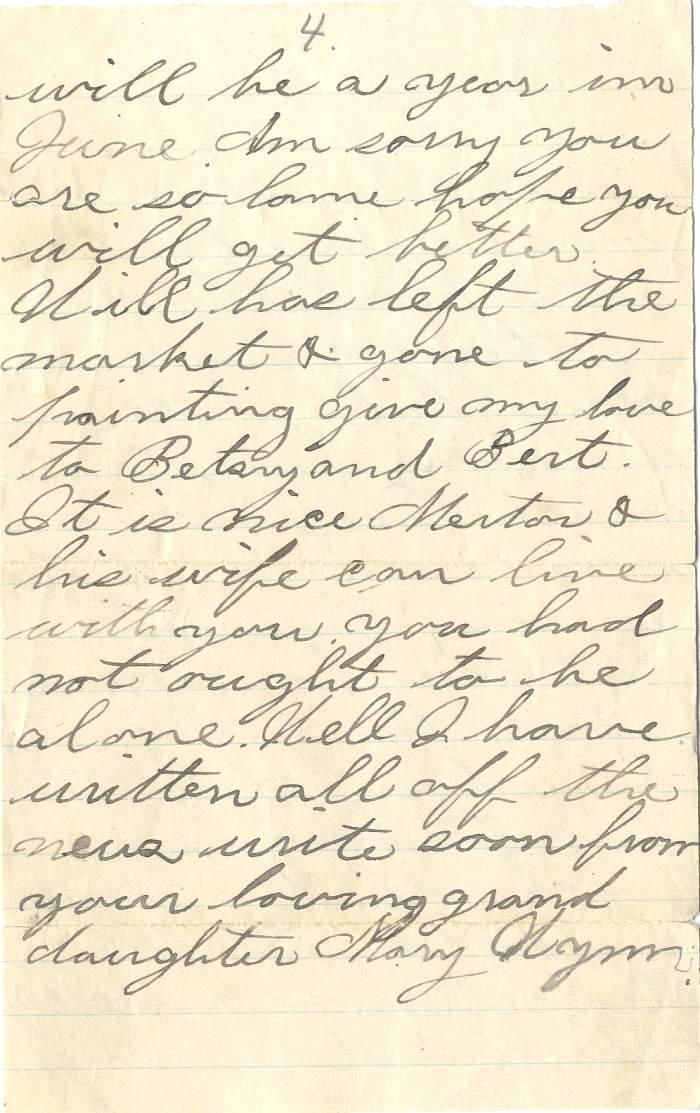 4.
will be a year in
June. Am sorry you
are so lame hope you
will get better.
Will has left the
market & gone to
painting give my love
to Betsy and Bert.
It is nice Merton &
his wife can live
with you. you had
not ought to be
alone. Well I have
written all off the
news write soon from
your loving grand
daughter Mary Wynn.